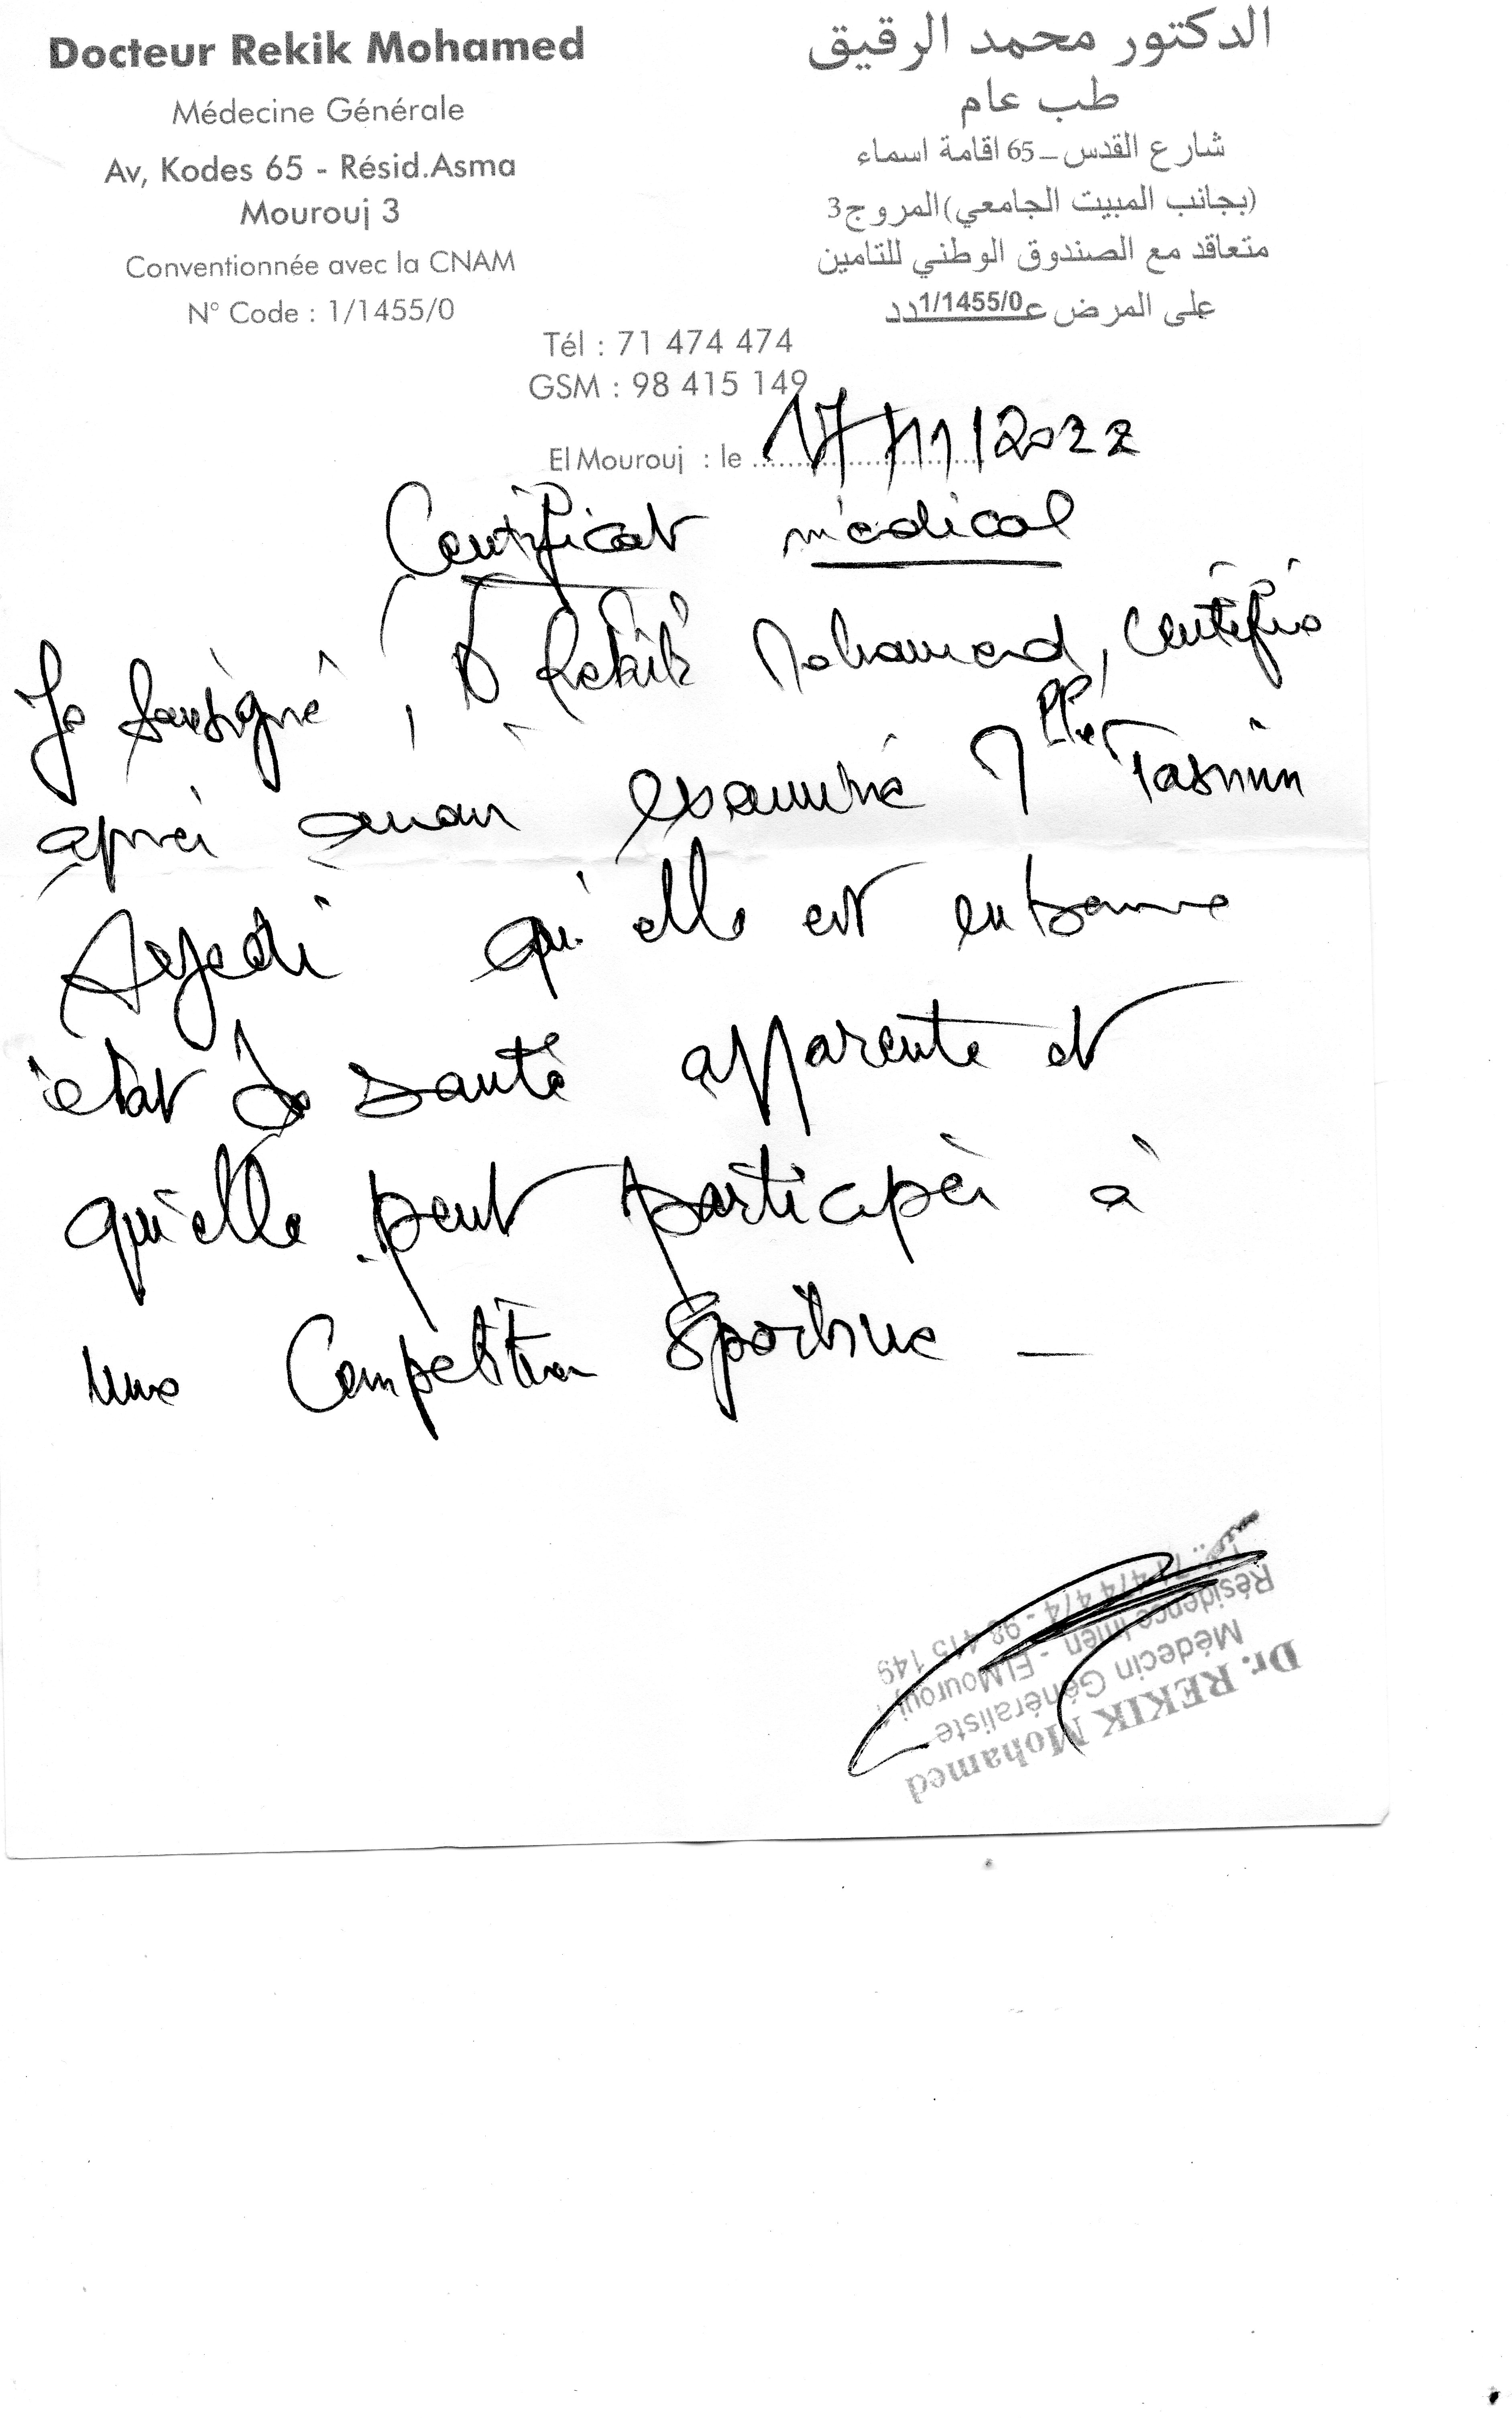 Docteur Rekik Mohamed
Médecine Générale
Av, Kodes 65 - Résid.Asma
Mourouj 3
Conventionnée avec la CNAM
N° Code : 1/1455/0
الدكتور محمد الرقيق
طب عام
شارع القدس _ 65 اقامة اسماء
(بجانب المبيت الجامعي) المروج 3
متعاقد مع الصندوق الوطني للتامين
على المرض ع1/1455/0دد
Tél : 71 474 474
GSM : 98 415 149
El Mourouj : le 17/11/2022
Certificat médical
Je soussigné, Dr Rekik Mohamed, certifie
après avoir examiné Mlle Tasnim
Ayedi qu'elle est en bonne
état de santé apparente et
qu'elle peut participer à
une Compétition Sportive -
Dr. REKIK Mohamed
Médecin Généraliste
Résidence Imen - El Mourouj
71 474 474 - 98 415 149